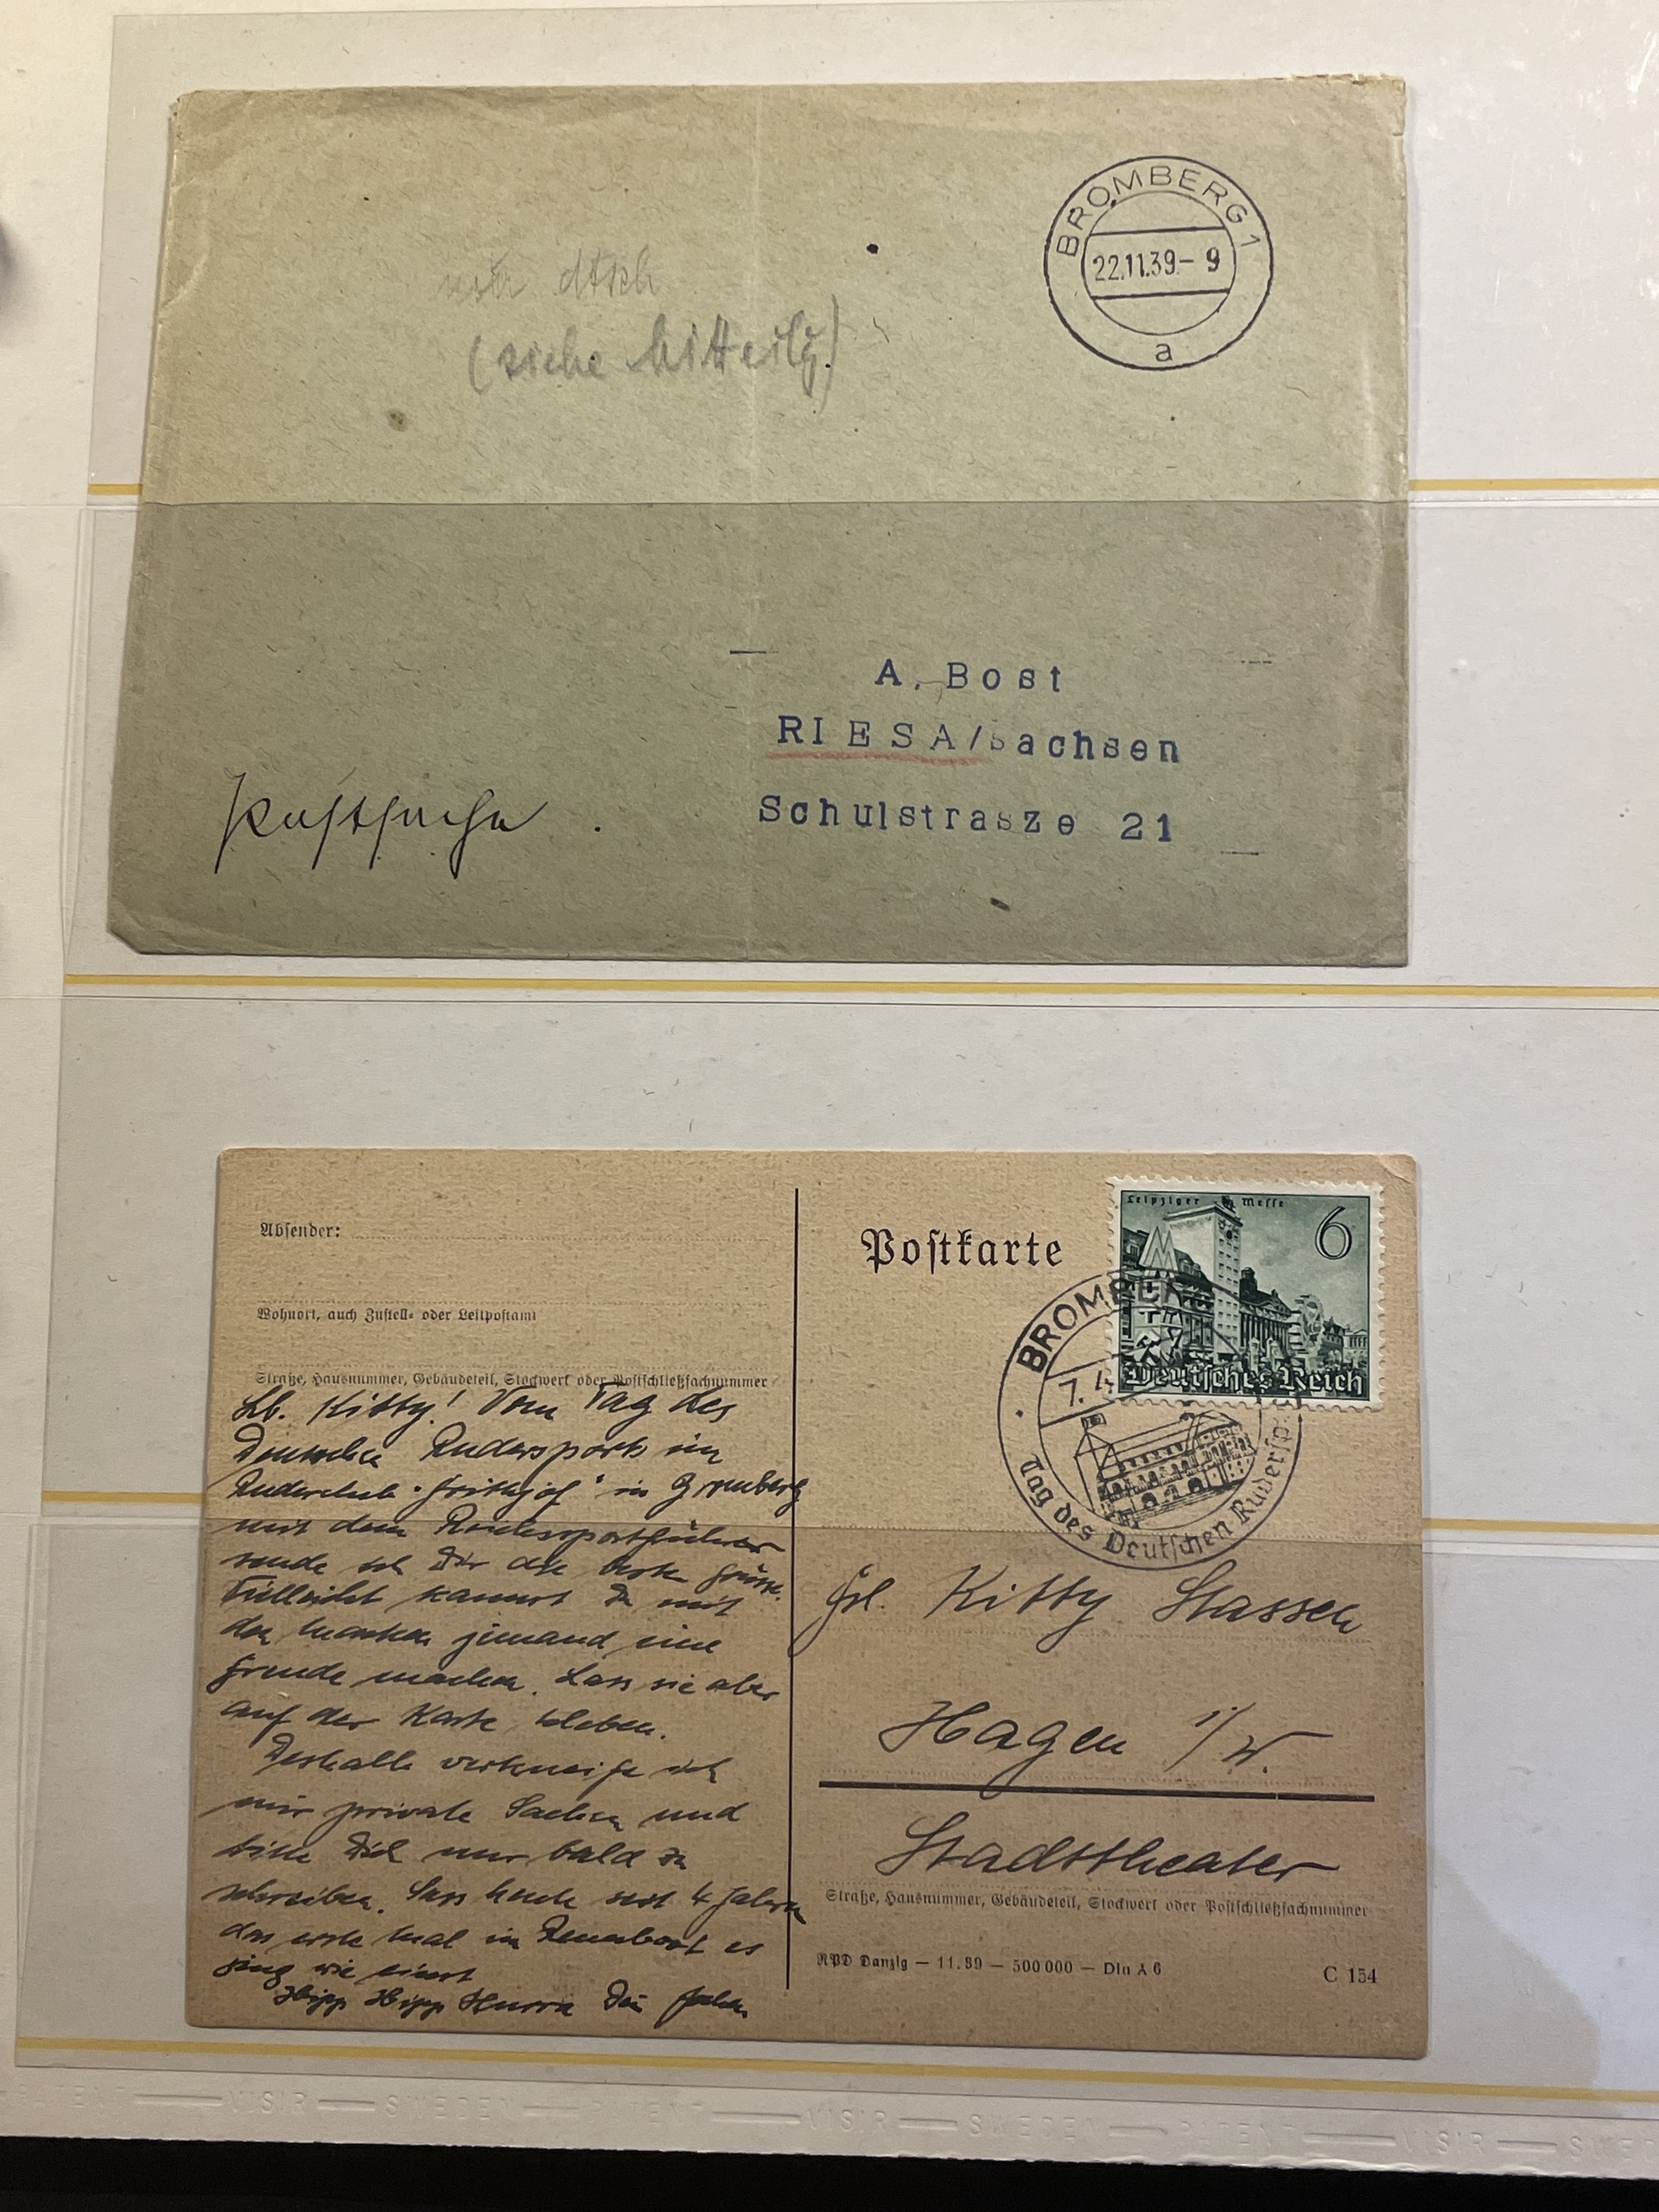 BROMBERG 1
22.11.39-9
a
dtsch
(siehe Mitteilg.)
A. Bost
RIESA/Sachsen
Schulstrasze 21
Postsache.
Absender:
Wohnort, auch Zustell- oder Leitpostamt
Straße, Hausnummer, Gebäudeteil, Stockwerk oder Postschließfachnummer
Lb. Kitty! Vom Tag des
Deutschen Rudersports im
Ruderclub "Frithjof" in Bromberg
mit dem Reichssportführer
sende ich Dir die besten Grüsse.
Vielleicht kannst Du mit
den Marken jemand eine
Freude machen. Lass sie aber
auf der Karte kleben.
Deshalb verkneife ich
mir private Sachen und
bitte Dich nur bald zu
schreiben. Sass heute seit 4 Jahren
das erste Mal im Rennboot es
ging wie einst
Hipp Hipp Hurra Dein
Postkarte
Leipziger Messe
6
Deutsches Reich
BROMBERG
7.4
Tag des Deutschen Rudersp.
Frl. Kitty Stassen
Hagen i/W.
Stadttheater
Straße, Hausnummer, Gebäudeteil, Stockwerk oder Postschließfachnummer
RPD Danzig — 11.39 — 500 000 — Din A 6
C 154
PATENT — VISIR — SWEDEN — PATENT — VISIR — SWEDEN — PATENT — VISIR — SWED